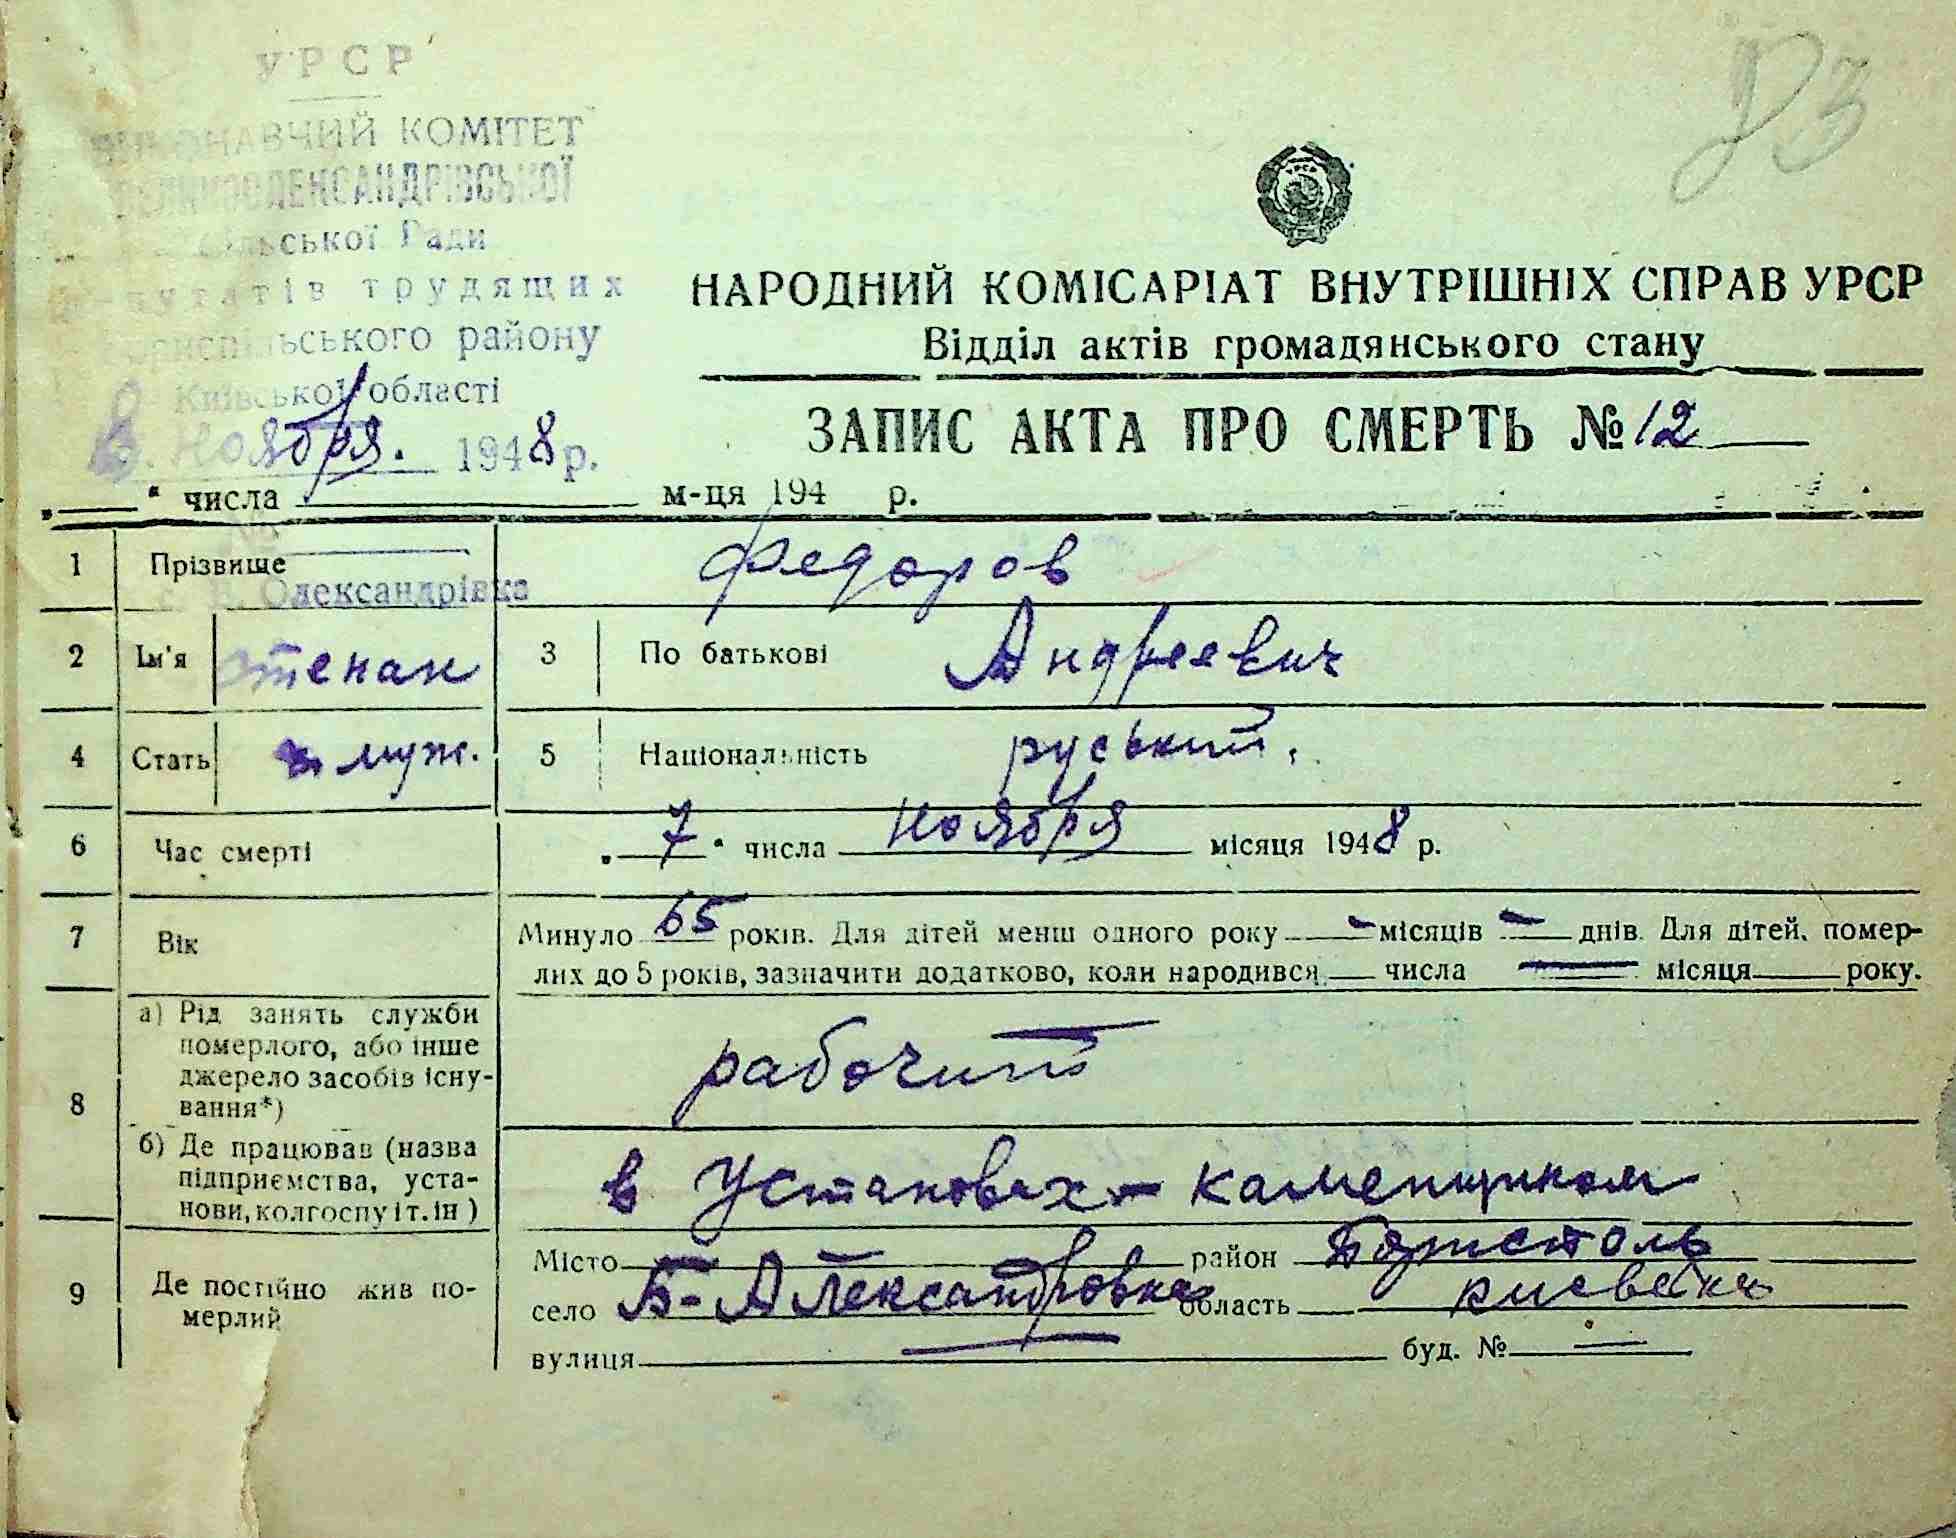 УРСР
ВИКОНАВЧИЙ КОМІТЕТ
ВЕЛИКООЛЕКСАНДРІВСЬКОЇ
сільської Ради
депутатів трудящих
Бориспільського району
Київської області
ноября. 1948 р.
НАРОДНИЙ КОМІСАРІАТ ВНУТРІШНІХ СПРАВ УРСР
Відділ актів громадянського стану
ЗАПИС АКТА ПРО СМЕРТЬ № 12
„ “ числа м-ця 194 р.
1 Прізвище Федоров
с. В. Олександрівка
2 Ім'я Степан 3 По батькові Андреевич
4 Стать муж. 5 Національність руський.
6 Час смерті „7“ числа ноября місяця 1948 р.
7 Вік Минуло 65 років. Для дітей менш одного року - місяців - днів. Для дітей, помер-
лих до 5 років, зазначити додатково, коли народився числа — місяця року.
8 а) Рід занять служби
померлого, або інше
джерело засобів існу-
вання*)
рабочий
б) Де працював (назва
підприємства, уста-
нови, колгоспу і т. ін)
в Установах - каменщиком
9 Де постійно жив по-
мерлий
Місто — район Борисполь
село Б-Александровка область киевска
вулиця — буд. № —